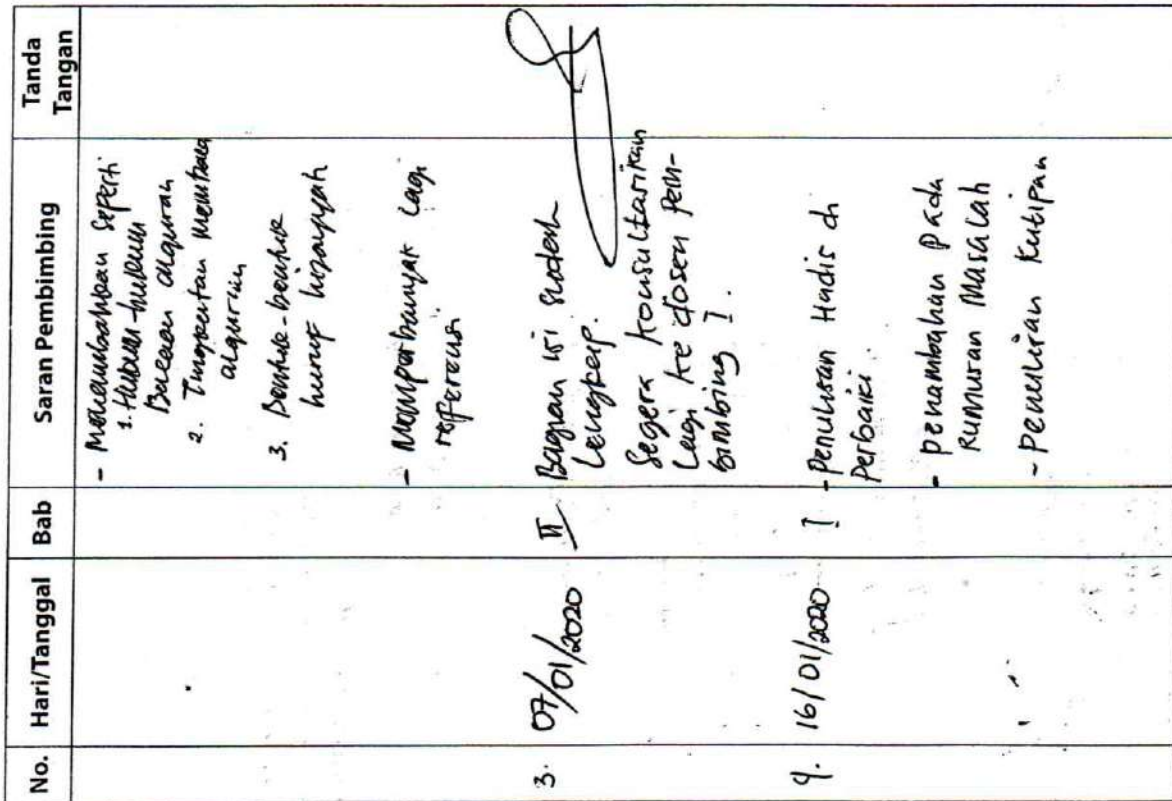 No. Hari/Tanggal Bab Saran Pembimbing Tanda Tangan
- Menambahkan seperti
1. Hukum-hukum
Bacaan alquran
2. Tingkatan membaca
alquran
3. Bentuk-bentuk
huruf hijaiyah
- Memperbanyak lagi
referensi
3. 07/01/2020 II Bagian isi sudah
Lengkap.
Segera konsultasikan
Lagi ke dosen Pem-
bimbing I.
4. 16/01/2020 I - Penulisan Hadis di
Perbaiki
- penambahan pada
Rumusan Masalah
- Penulisan Kutipan